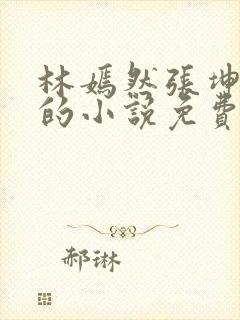 林嫣然張坤
的小說免費
郝琳